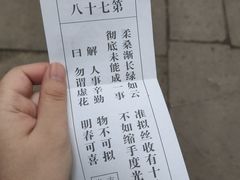 第七十八
柔桑渐长绿如云
准拟丝收有十
彻底未能成一事
不如缩手度光
解曰
人事辛勤
物不可拟
勿谓虚花
明春可喜